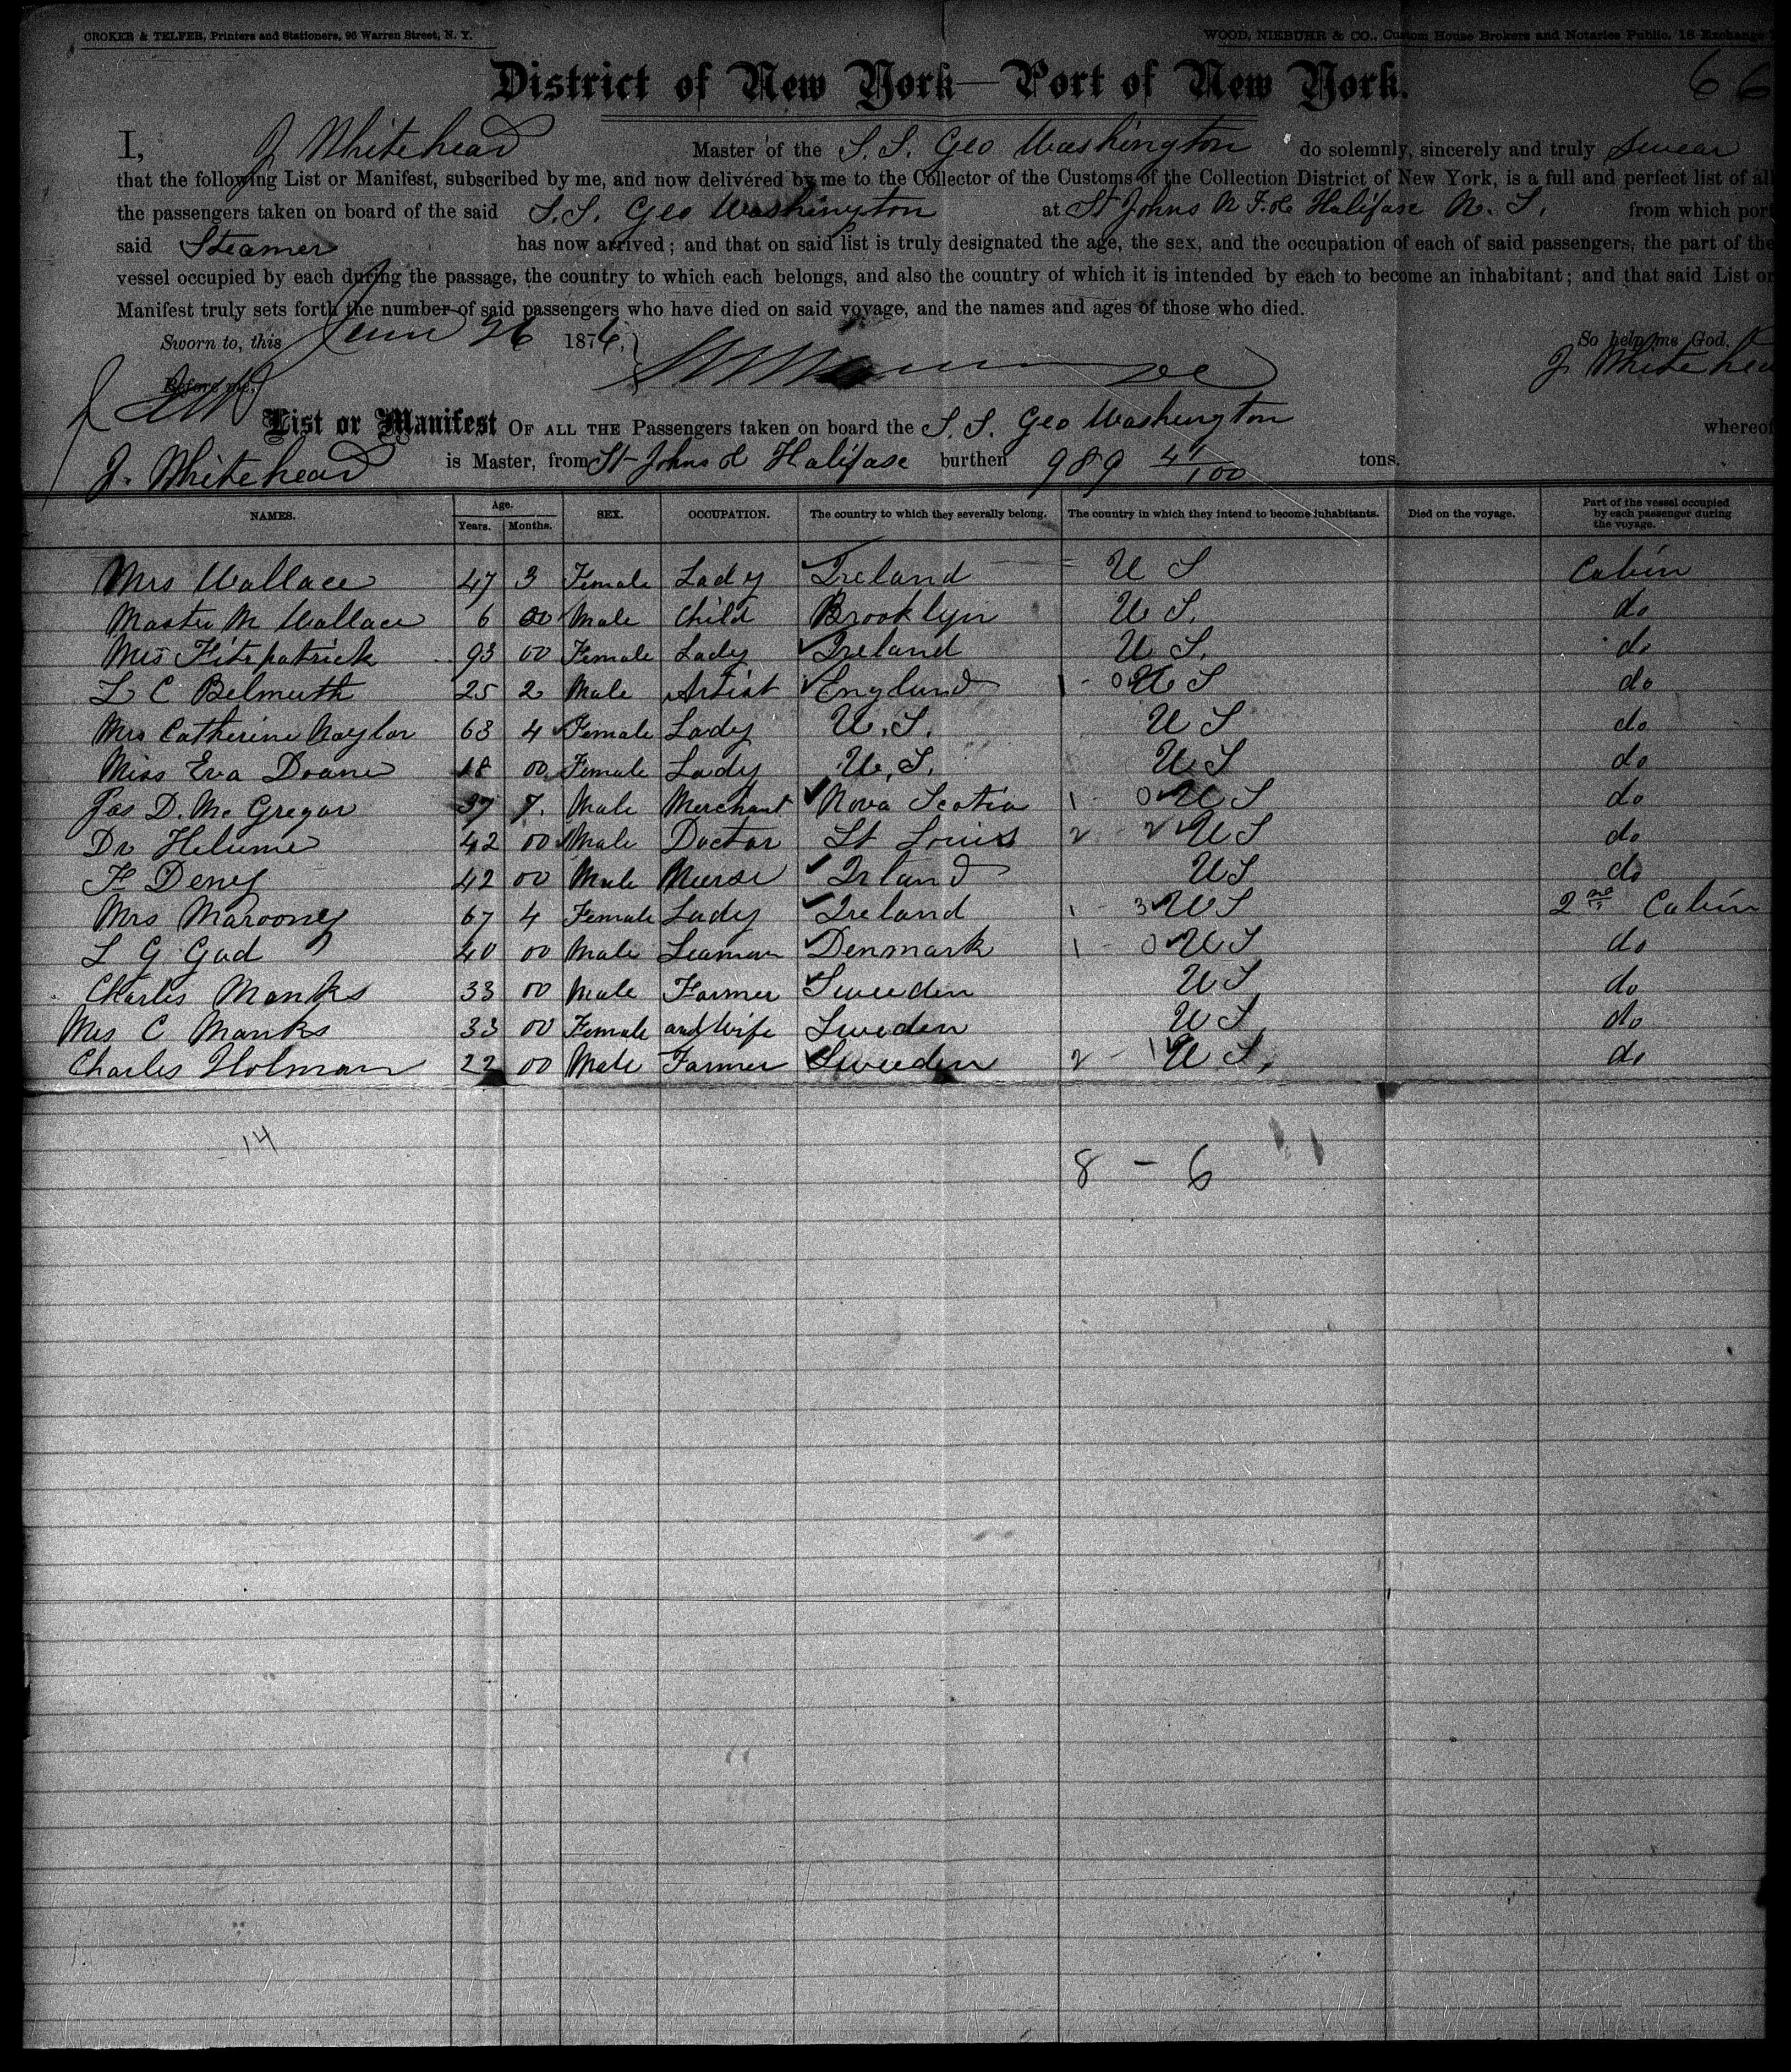 CROKER & TELFER, Printers and Stationers, 96 Warren Street, N. Y. WOOD, NIEBUHR & CO., Custom House Brokers and Notaries Public, 18 Exchange
District of New York—Port of New York. 66
I, J Whitehead Master of the S. S. Geo Washington do solemnly, sincerely and truly swear
that the following List or Manifest, subscribed by me, and now delivered by me to the Collector of the Customs of the Collection District of New York, is a full and perfect list of all
the passengers taken on board of the said S. S. Geo Washington at St Johns N F. & Halifax N. S. from which port
said Steamer has now arrived; and that on said list is truly designated the age, the sex, and the occupation of each of said passengers, the part of the
vessel occupied by each during the passage, the country to which each belongs, and also the country of which it is intended by each to become an inhabitant; and that said List or
Manifest truly sets forth the number of said passengers who have died on said voyage, and the names and ages of those who died.
Sworn to, this June 26 1876, So help me God.
Before me, J Whitehea
List or Manifest OF ALL THE Passengers taken on board the S. S. Geo Washington whereof
J. Whitehead is Master, from St Johns & Halifax burthen 989 41/100 tons.
NAMES. Age. Years. Months. SEX. OCCUPATION. The country to which they severally belong. The country in which they intend to become inhabitants. Died on the voyage. Part of the vessel occupied by each passenger during the voyage.
Mrs Wallace 47 3 Female Lady Ireland U S Cabin
Master M Wallace 6 00 Male Child Brooklyn U S. do
Mrs Fitzpatrick 93 00 Female Lady Ireland U S. do
L C Belmuth 25 2 Male Artist England 1 - 0 U S do
Mrs Catherine Naylor 63 4 Female Lady U. S. U S do
Miss Eva Doane 18 00 Female Lady U. S. U S do
Jas D. Mc Gregor 37 7. Male Merchant Nova Scotia 1 - 0 U S do
Dr Helume 42 00 Male Doctor St Louis 2 - 2 U S do
F Deney 42 00 Male Nurse Irland U S do
Mrs Marooney 67 4 Female Lady Ireland 1 - 3 U S 2nd Cabin
L G Gad 40 00 Male Seaman Denmark 1 - 0 U S do
Charles Manks 33 00 Male Farmer Sweeden U S do
Mrs C Manks 33 00 Female and Wife Sweden U S do
Charles Holman 22 00 Male Farmer Sweeden 2 - 1 U S. do
14
8 - 6